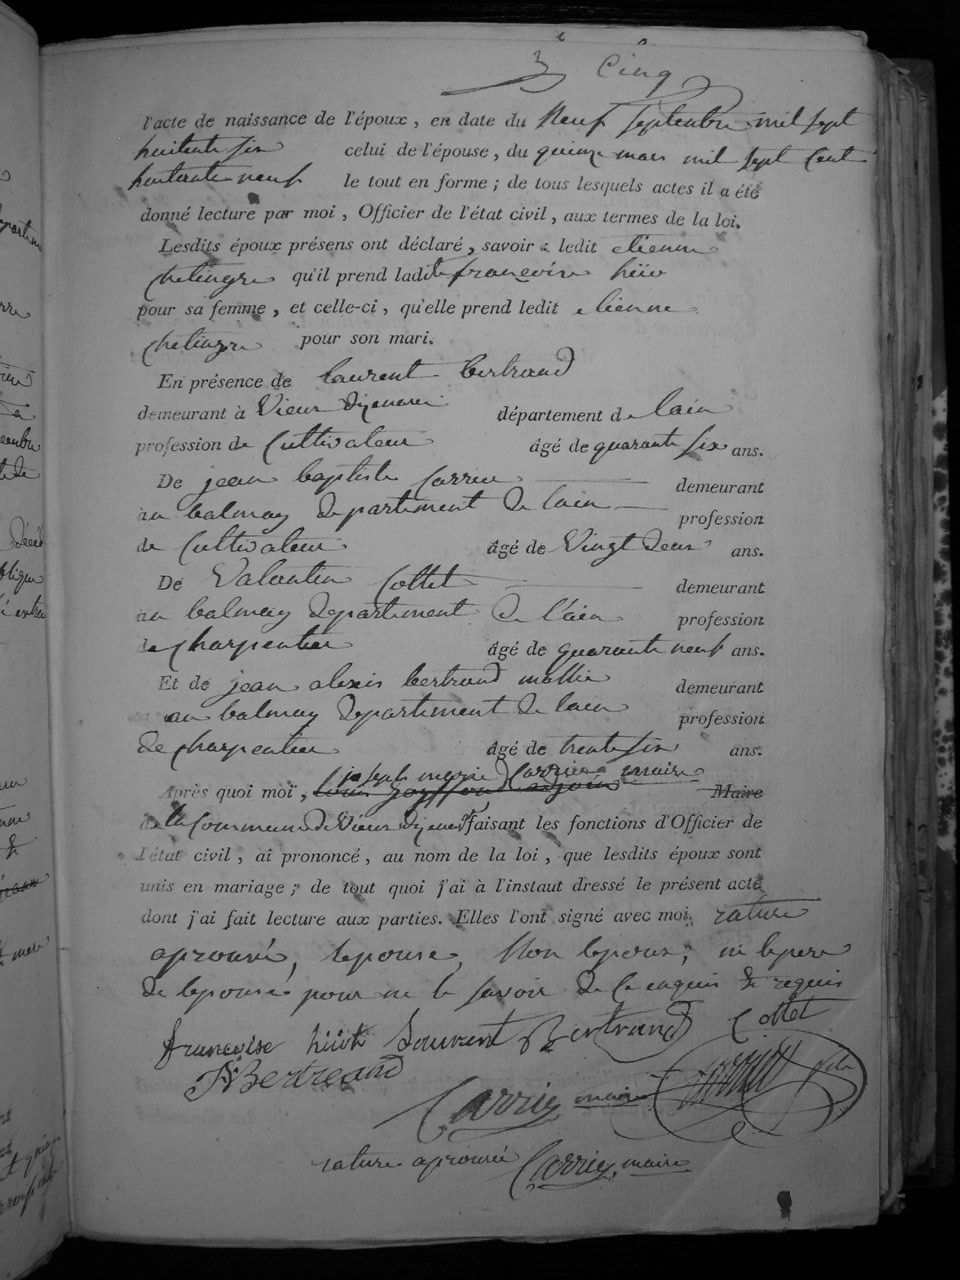 3e Cinq
l'acte de naissance de l'époux, en date du Neuf septembre mil sept
huitente six celui de l'épouse, du quinze mars mil sept cent
huitante neuf le tout en forme; de tous lesquels actes il a été
donné lecture par moi, Officier de l'état civil, aux termes de la loi.
Lesdits époux présens ont déclaré, savoir: ledit etienne
qu'il prend ladite françoise
pour sa femme, et celle-ci, qu'elle prend ledit etienne
pour son mari.
En présence de laurent bertrand
demeurant à Vieux département de lain
profession de Cultivateur âgé de quarante six ans.
De jean baptiste carrier demeurant
au balmay departement de lain profession
de Cultivateur âgé de Vingt deux ans.
De Valentin Cottet demeurant
au balmay departement de l'ain profession
de Charpentier âgé de quarante neuf ans.
Et de jean alexis bertrand demeurant
au balmay departement de lain profession
de charpentier âgé de trente six ans.
joseph marie Carrier maire
Après quoi moi, Maire
de la Commune de Vieux faisant les fonctions d'Officier de
l'état civil, ai prononcé, au nom de la loi, que lesdits époux sont
unis en mariage; de tout quoi j'ai à l'instaut dressé le présent acte
dont j'ai fait lecture aux parties. Elles l'ont signé avec moi. rature
aprouvée, lepouse, Non lepoux; ni le pere
de lepouse pour ne le savoir de ce enquis & requis
francoise hüüt Laurent Bertrand Cottet
Bertreand
Carrier maire
rature aprouvée Carrier, maire